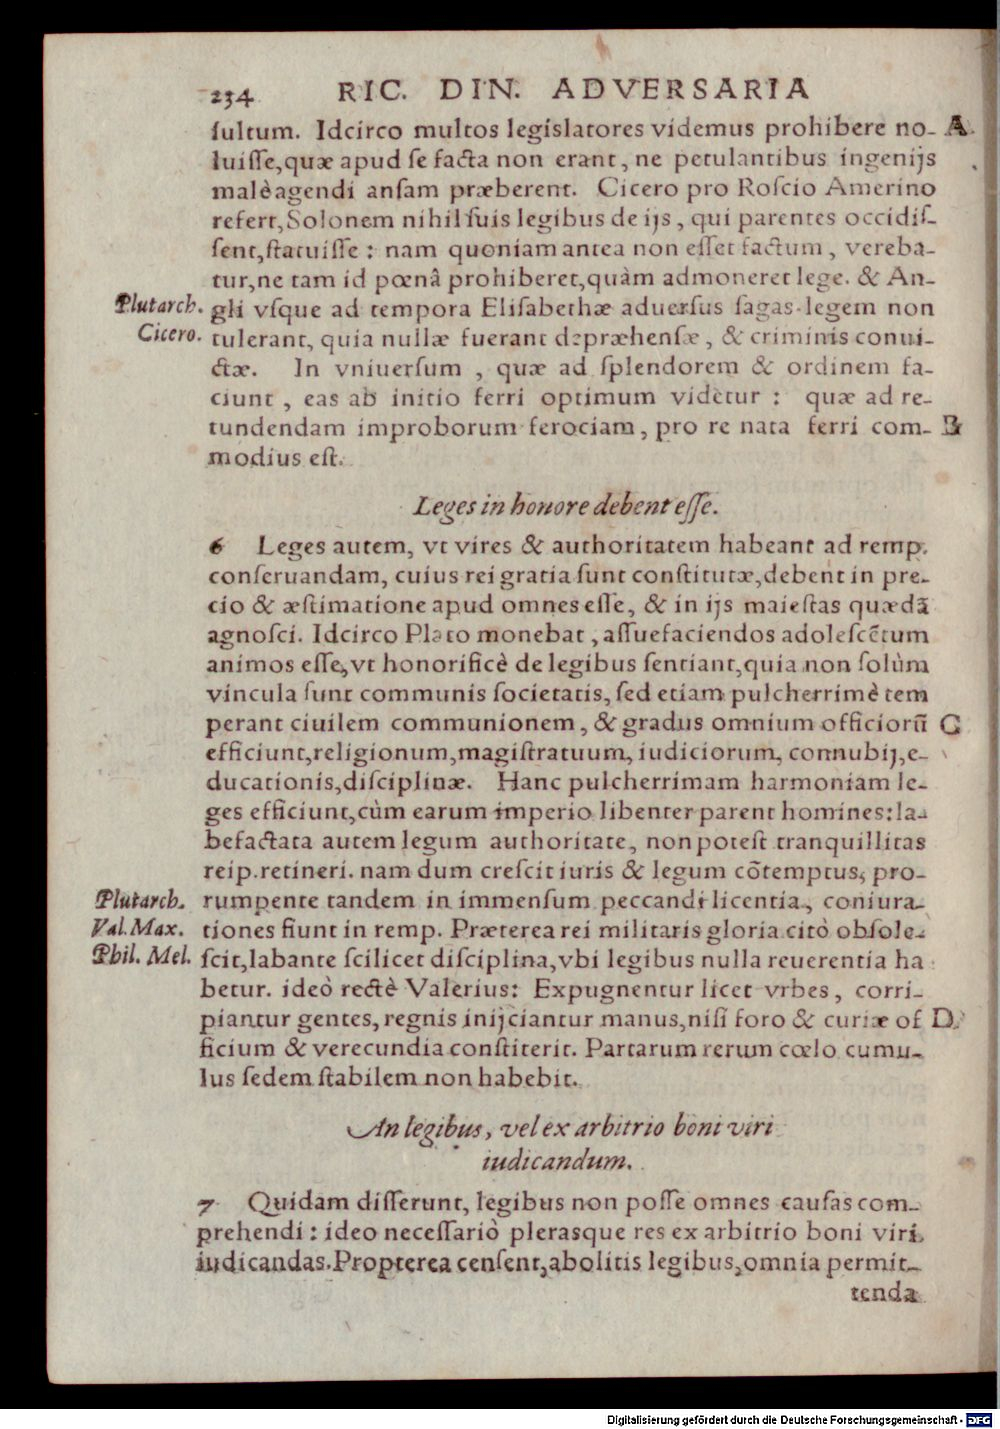 234 RIC. DIN. ADVERSARIA
ſultum. Idcirco multos legiſlatores videmus prohibere no- A
luiſſe,quæ apud ſe facta non erant, ne petulantibus ingenijs
malè agendi anſam præberent. Cicero pro Roſcio Amerino
refert,Solonem nihil ſuis legibus de ijs, qui parentes occidiſ-
ſent,ſtatuiſſe: nam quoniam antea non eſſet factum, vereba-
tur,ne tam id pœnâ prohiberet,quàm admoneret lege. & An-
Plutarch. gli vſque ad tempora Eliſabethæ aduerſus ſagas legem non
Cicero. tulerant, quia nullæ fuerant depræhenſæ, & criminis conui-
ctæ. In vniuerſum, quæ ad ſplendorem & ordinem fa-
ciunt, eas ab initio ferri optimum videtur: quæ ad re-
tundendam improborum ferociam, pro re nata ferri com- B
modius eſt.
Leges in honore debent eſſe.
6 Leges autem, vt vires & authoritatem habeant ad remp.
conſeruandam, cuius rei gratia ſunt conſtitutæ,debent in pre-
cio & æſtimatione apud omnes eſſe, & in ijs maieſtas quædã
agnoſci. Idcirco Plato monebat, aſſuefaciendos adoleſcẽtum
animos eſſe,vt honorificè de legibus ſentiant,quia non ſolùm
vincula ſunt communis ſocietatis, ſed etiam pulcherrimè tem
perant ciuilem communionem, & gradus omnium officiorũ C
efficiunt,religionum,magiſtratuum, iudiciorum, connubij,e-
ducationis,diſciplinæ. Hanc pulcherrimam harmoniam le-
ges efficiunt,cùm earum imperio libenter parent homines:la-
befactata autem legum authoritate, non poteſt tranquillitas
reip.retineri. nam dum creſcit iuris & legum cõtemptus, pro-
Plutarch. rumpente tandem in immenſum peccandi licentia, coniura-
Val. Max. tiones fiunt in remp. Præterea rei militaris gloria citò obſole-
Phil. Mel. ſcit,labante ſcilicet diſciplina,vbi legibus nulla reuerentia ha
betur. ideò rectè Valerius: Expugnentur licet vrbes, corri-
piantur gentes,regnis inijciantur manus,niſi foro & curiæ of D
ficium & verecundia conſtiterit. Partarum rerum cœlo cumu-
lus ſedem ſtabilem non habebit.
An legibus, vel ex arbitrio boni viri
iudicandum.
7 Quidam diſſerunt, legibus non poſſe omnes cauſas com-
prehendi: ideo neceſſariò pleraſque res ex arbitrio boni viri
iudicandas.Propterea cenſent,abolitis legibus,omnia permit-
tenda
Digitalisierung gefördert durch die Deutsche Forschungsgemeinschaft - DFG